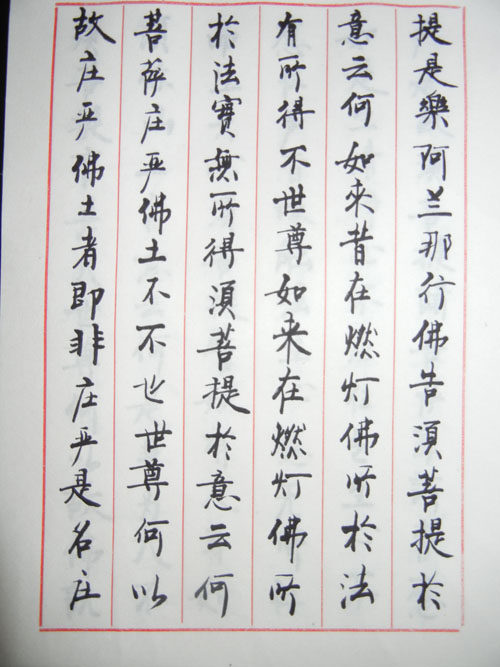 提是樂阿兰那行佛告須菩提於
意云何如來昔在燃灯佛所於法
有所得不世尊如来在燃灯佛所
於法實無所得須菩提於意云何
菩萨庄严佛土不不也世尊何以
故庄严佛土者即非庄严是名庄